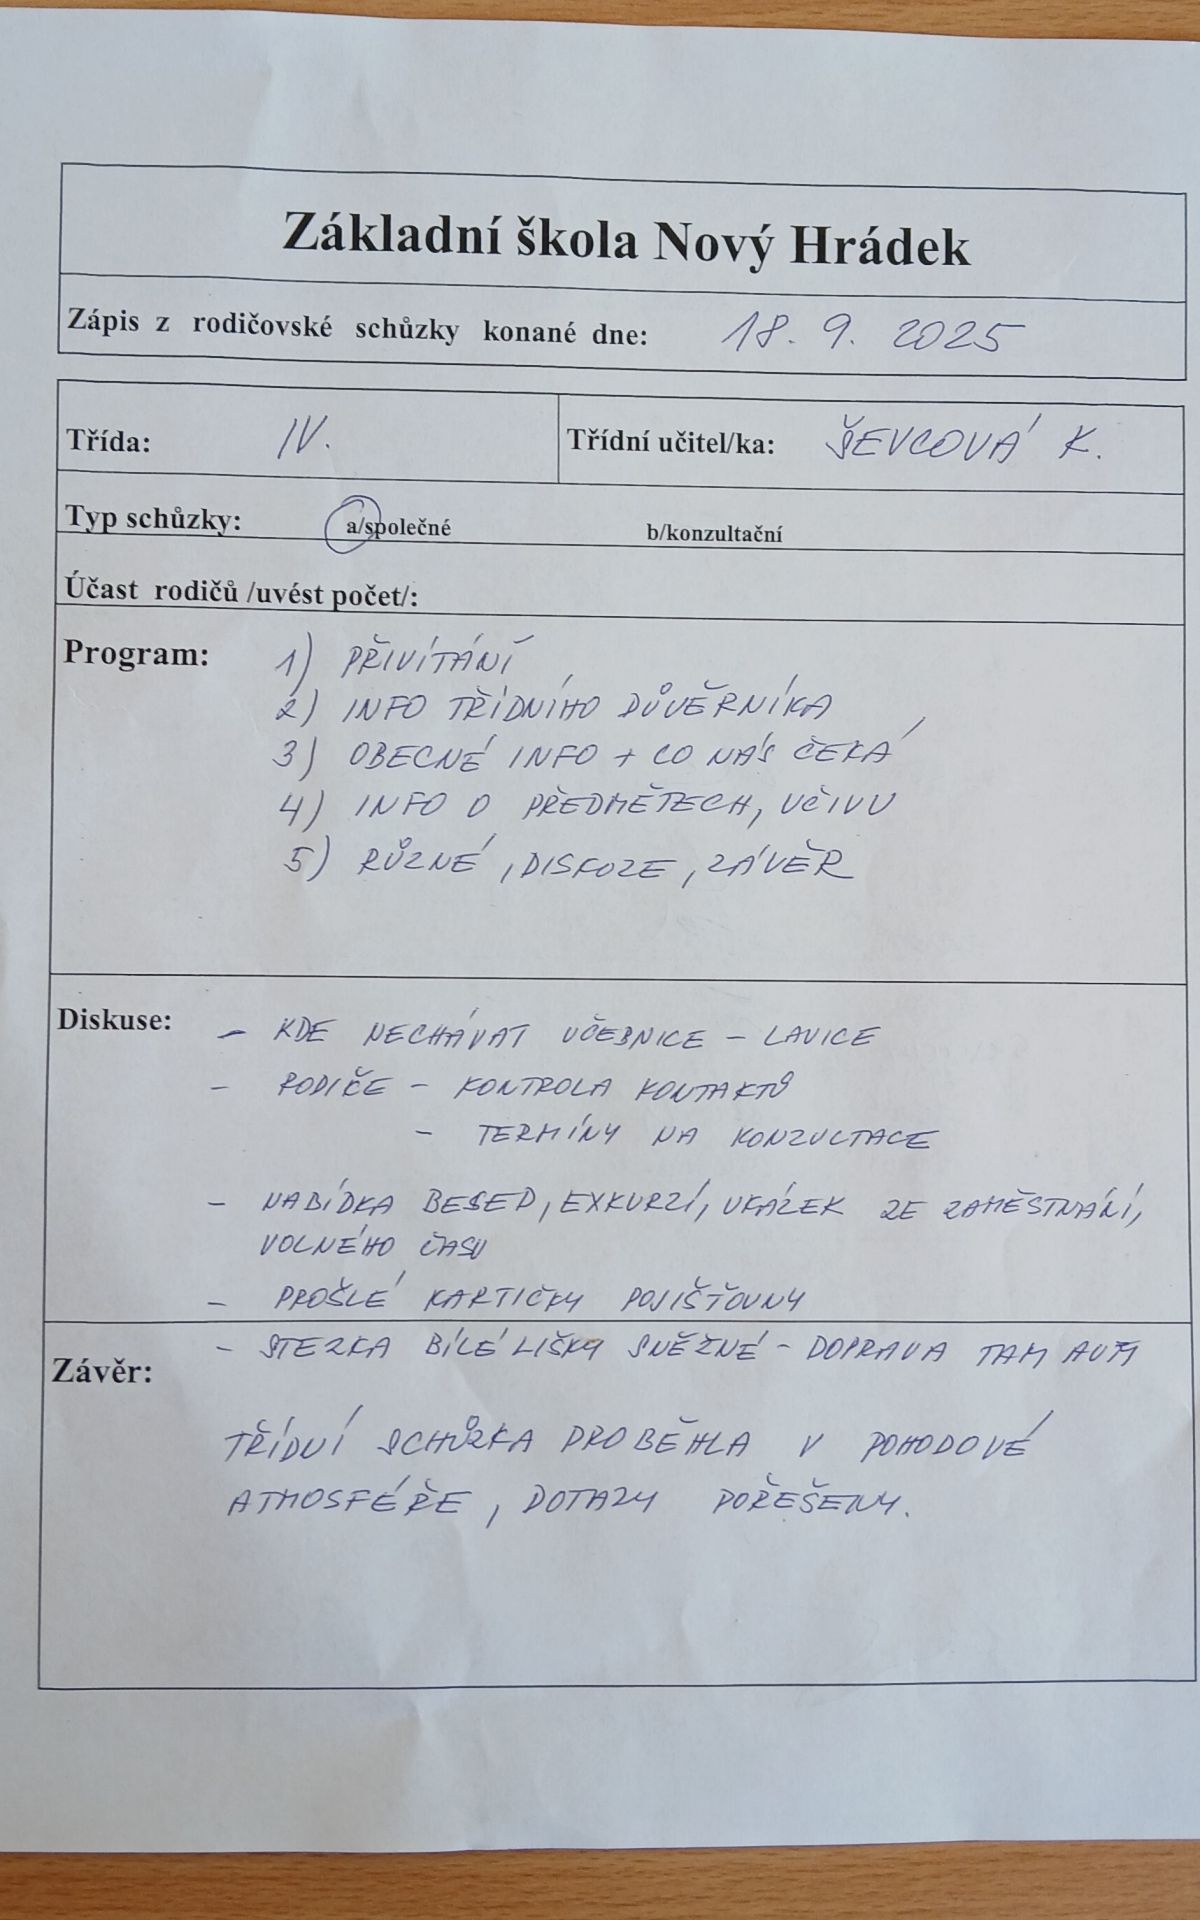 Základní škola Nový Hrádek
Zápis z rodičovské schůzky konané dne: 18. 9. 2025
Třída: IV. Třídní učitel/ka: ŠEVCOVÁ K.
Typ schůzky: a/společné b/konzultační
Účast rodičů /uvést počet/:
Program: 1) PŘIVÍTÁNÍ
2) INFO TŘÍDNÍHO DŮVĚRNÍKA
3) OBECNÉ INFO + CO NÁS ČEKÁ
4) INFO O PŘEDMĚTECH, UČIVU
5) RŮZNÉ, DISKUZE, ZÁVĚR
Diskuse: - KDE NECHÁVAT UČEBNICE - LAVICE
- RODIČE - KONTROLA KONTAKTŮ
- TERMÍNY NA KONZULTACE
- NABÍDKA BESED, EXKURZÍ, UKÁZEK ZE ZAMĚSTNÁNÍ,
VOLNÉHO ČASU
- PROŠLÉ KARTIČKY POJIŠŤOVNY
- STEZKA BÍLÉ LIŠKY SNĚŽNÉ - DOPRAVA TAM AUTY
Závěr:
TŘÍDNÍ SCHŮZKA PROBĚHLA V POHODOVÉ
ATMOSFÉŘE, DOTAZY POŘEŠENY.